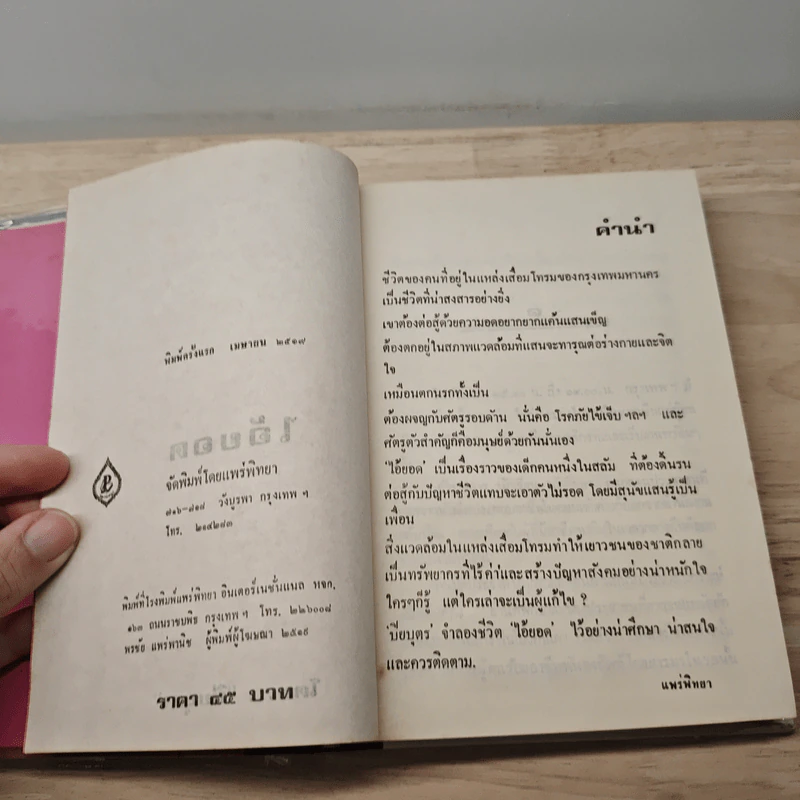 พิมพ์ครั้งแรก เมษายน ๒๕๑๗
จัดพิมพ์โดยแพร่พิทยา
๗๑๖-๗๑๗ วังบูรพา กรุงเทพ ฯ
โทร. ๒๑๔๒๘๓
พิมพ์ที่โรงพิมพ์แพร่พิทยา อินเตอร์เนชั่นแนล หจก.
๑๖๓ ถนนราชบพิธ กรุงเทพ ฯ โทร. ๒๒๖๐๐๘
พรชัย แพร่พานิช ผู้พิมพ์ผู้โฆษณา ๒๕๑๗
ราคา ๔๕ บาท
คำนำ
ชีวิตของคนที่อยู่ในแหล่งเสื่อมโทรมของกรุงเทพมหานคร
เป็นชีวิตที่น่าสงสารอย่างยิ่ง
เขาต้องต่อสู้ด้วยความอดอยากยากแค้นแสนเข็ญ
ต้องตกอยู่ในสภาพแวดล้อมที่แสนจะทารุณต่อร่างกายและจิต
ใจ
เหมือนตกนรกทั้งเป็น
ต้องผจญกับศัตรูรอบด้าน นั่นคือ โรคภัยไข้เจ็บ ฯลฯ และ
ศัตรูตัวสำคัญก็คือมนุษย์ด้วยกันนั่นเอง
'ไอ้ยอด' เป็นเรื่องราวของเด็กคนหนึ่งในสลัม ที่ต้องดิ้นรน
ต่อสู้กับปัญหาชีวิตแทบจะเอาตัวไม่รอด โดยมีสุนัขแสนรู้เป็น
เพื่อน
สิ่งแวดล้อมในแหล่งเสื่อมโทรมทำให้เยาวชนของชาติกลาย
เป็นทรัพยากรที่ไร้ค่าและสร้างปัญหาสังคมอย่างน่าหนักใจ
ใครๆก็รู้ แต่ใครเล่าจะเป็นผู้แก้ไข ?
'ปิยบุตร' จำลองชีวิต 'ไอ้ยอด' ไว้อย่างน่าศึกษา น่าสนใจ
และควรติดตาม.
แพร่พิทยา